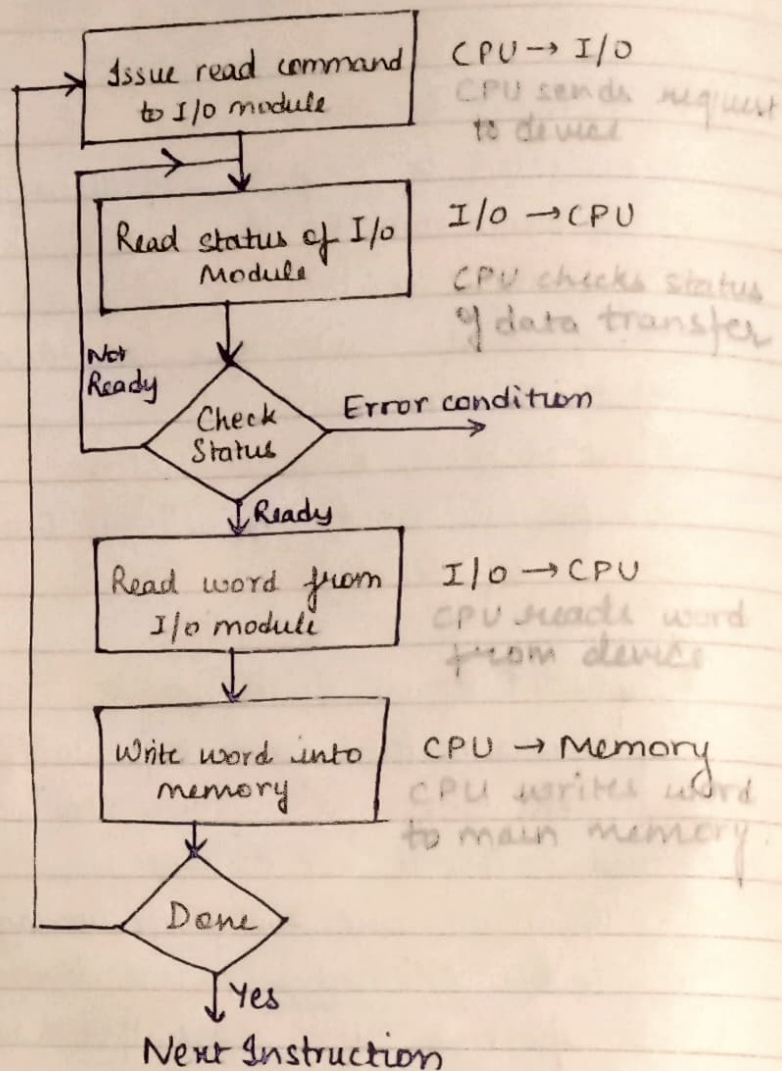 Issue read command
to I/O module
CPU → I/O
CPU sends request
to device
Read status of I/O
Module
I/O → CPU
CPU checks status
of data transfer
Not
Ready
Check
Status
Error condition
Ready
Read word from
I/O module
I/O → CPU
CPU reads word
from device
Write word into
memory
CPU → Memory
CPU writes word
to main memory
Done
Yes
Next Instruction